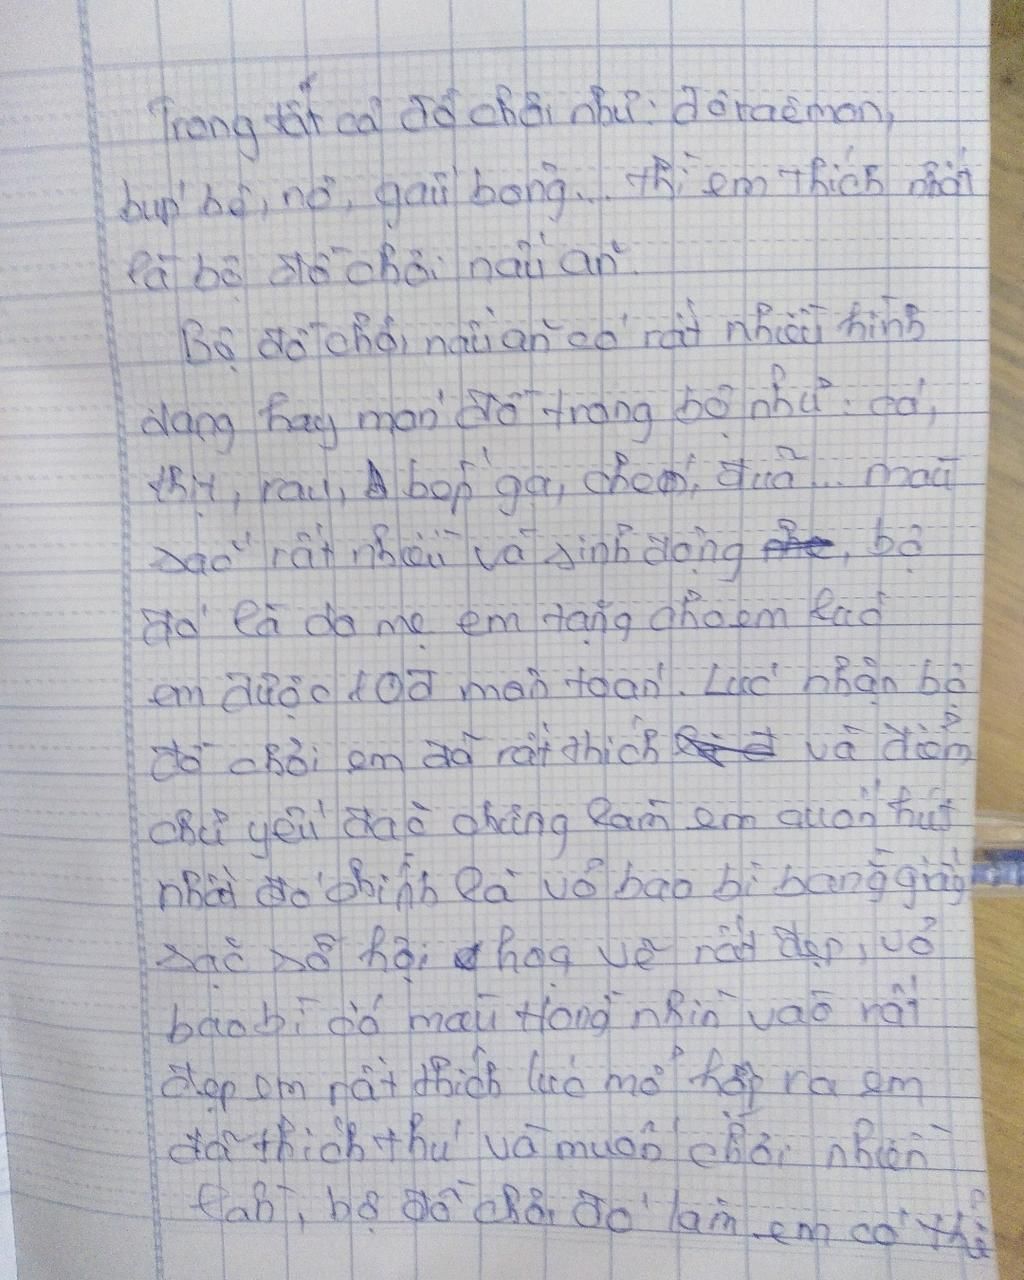 Trong tất cả đồ chơi như: đôraêmon,
búp bê, nơ, gấu bông... thì em thích nhất
là bộ đồ chơi nấu ăn.
Bộ đồ chơi nấu ăn có rất nhiều hình
dạng hay món đồ trong bộ như: cá,
thịt, rau, bắp, gà, chén, đũa... màu
sắc rất nhiều và sinh động, bộ
đó là do mẹ em tặng cho em lúc
em được 10đ môn toán. Lúc nhận bộ
đồ chơi em đã rất thích và điểm
chủ yếu chúng làm em cuốn hút
nhất đó chính là vỏ bao bì bằng giấy
sặc sỡ hơi hoạ vẽ rất đẹp, vỏ
bao bì có màu hồng nhìn vào rất
đẹp em rất thích lúc mở hộp ra em
đã thích thú và muốn chơi nhiều
lần, bộ đồ chơi đó làm em có thể